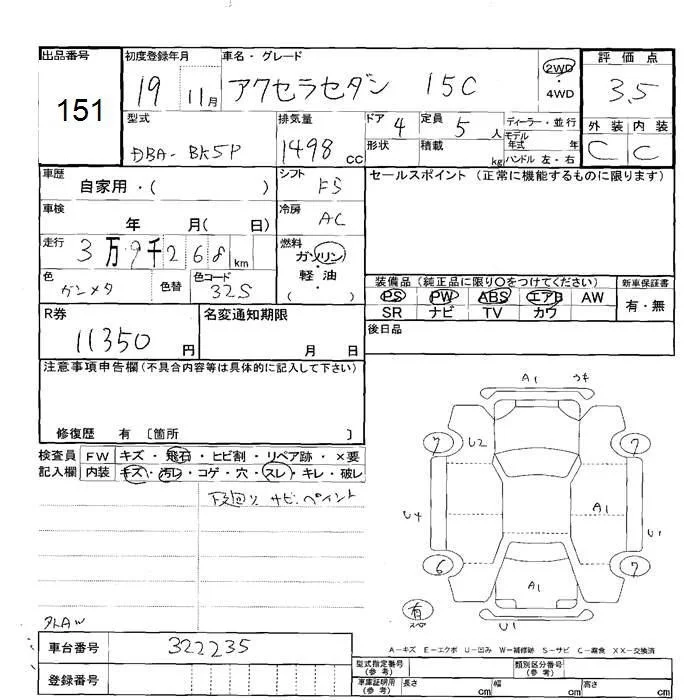 出品番号 初度登録年月 車名・グレード 2WD 評価点
151 19 11月 アクセラセダン 15C ・4WD 3.5
型式 排気量 ドア 4 定員 5人 ディーラー・並行 外装 内装
DBA-BK5P 1498CC 形状 積載 kg モデル年式 年 C C
ハンドル 左・右
車歴 自家用・( ) シフト F5 セールスポイント(正常に機能するものに限ります)
車検 年 月( 日) 冷房 AC
走行 3万9千268km 燃料 ガソリン・軽油
( )
色 ガンメタ 色替 色コード 32S
装備品(純正品に限り〇をつけてください) 新車保証書
PS PW ABS エアB AW 有・無
SR ナビ TV カワ
R券 11350円 名変通知期限 月 日 後日品
注意事項申告欄(不具合内容等は具体的に記入して下さい)
修復歴 有 〔箇所 〕
検査員 FW キズ・飛石・ヒビ割・リペア跡・×要
記入欄 内装 キズ・汚レ・コゲ・穴・スレ・キレ・破レ
下廻り サビ.ペイント
A1 ウキ
7 U2 7
U4 A1 U1
6 A1 7
有
U1
A-キズ E-エクボ U-凹み W-補修跡 S-サビ C-腐食 XX-交換済
車台番号 322235
登録番号
型式指定番号(参考) 類別区分番号(参考)
車庫証明用(参考) 長さ cm 幅 cm 高さ cm